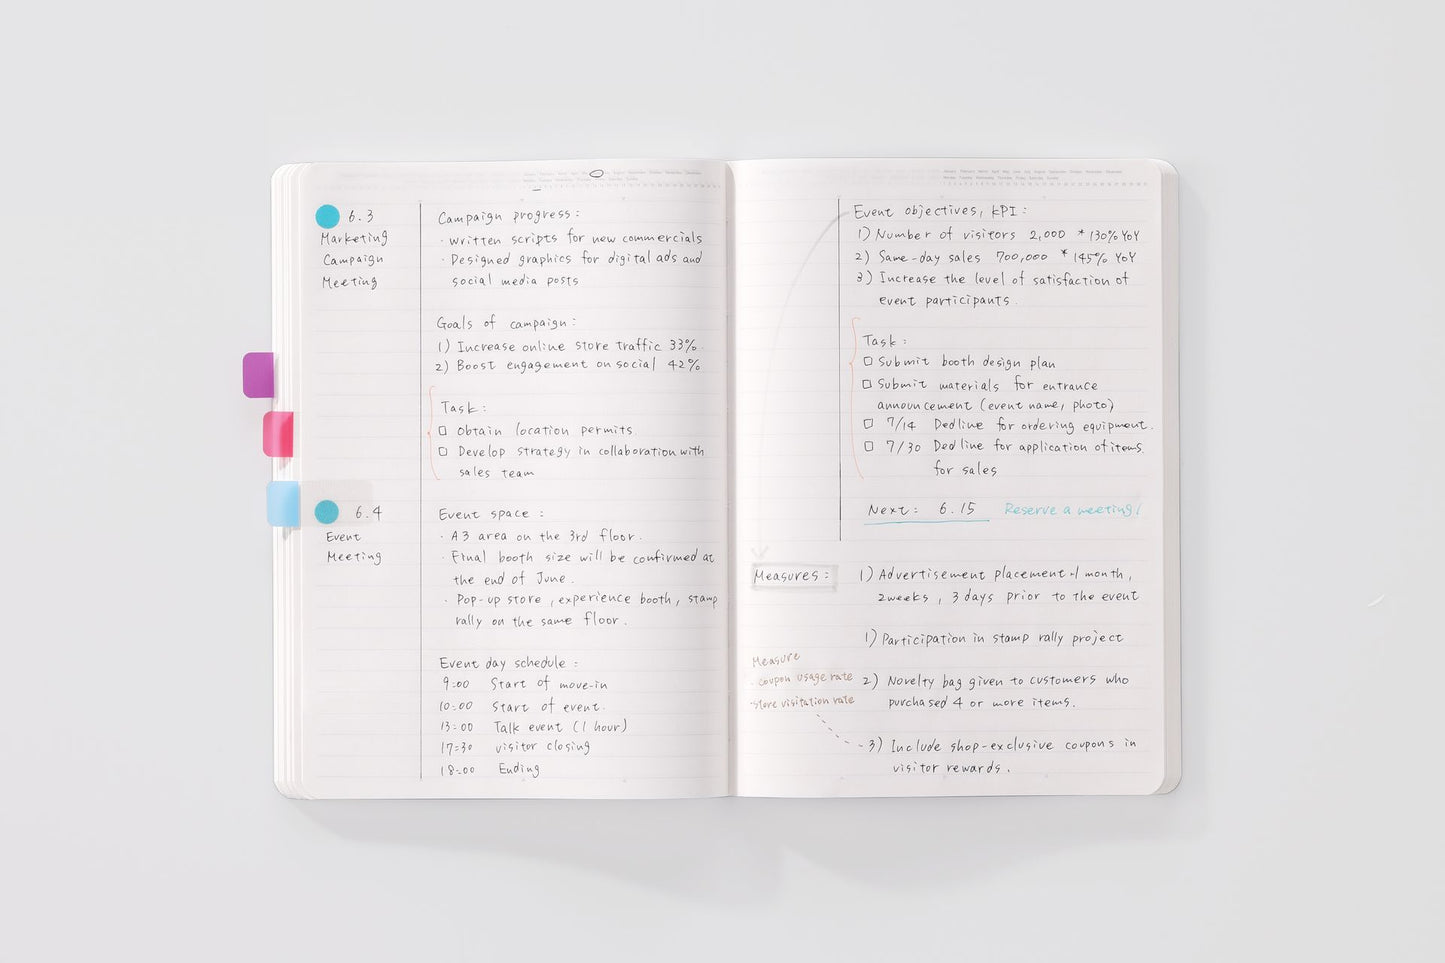 6.3
Marketing
Campaign
Meeting
Campaign progress:
· Written scripts for new commercials
· Designed graphics for digital ads and
social media posts
Goals of campaign:
1) Increase online store traffic 33%.
2) Boost engagement on social 42%
Task:
□ Obtain location permits.
□ Develop strategy in collaboration with
sales team
6.4
Event
Meeting
Event space:
· A3 area on the 3rd floor.
· Final booth size will be confirmed at
the end of June.
· Pop-up store, experience booth, stamp
rally on the same floor.
Event day schedule:
9:00 Start of move-in
10:00 Start of event.
13:00 Talk event (1 hour)
17:30 visitor closing
18:00 Ending
Event objectives, KPI:
1) Number of visitors 2,000 *130% YoY
2) Same-day sales 700,000 *145% YoY
3) Increase the level of satisfaction of
event participants.
Task:
□ Submit booth design plan
□ Submit materials for entrance
announcement (event name, photo)
□ 7/14 Dedline for ordering equipment.
□ 7/30 Dedline for application of items
for sales
Next: 6.15 Reserve a meeting!
Measures:
1) Advertisement placement 1 month,
2weeks, 3 days prior to the event
1) Participation in stamp rally project
Measure
· coupon usage rate
· store visitation rate
2) Novelty bag given to customers who
purchased 4 or more items.
3) Include shop-exclusive coupons in
visitor rewards.